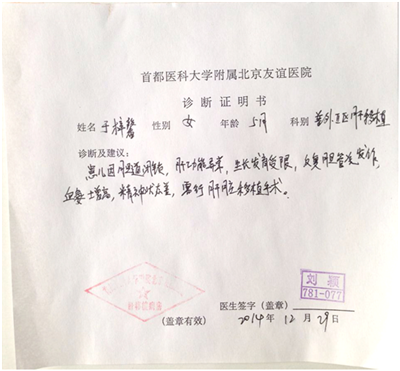 首都医科大学附属北京友谊医院
诊断证明书
姓名 于梓馨 性别 女 年龄 5月 科别 普外三区肝移植
诊断及建议:
患儿因胆道闭锁,肝功能异常,生长发育受限,反复胆管炎发作,
血氨土增高,精神状态差,需行肝脏移植手术。
刘颖
781-077
医生签字(盖章)
(盖章有效) 2014年12月29日